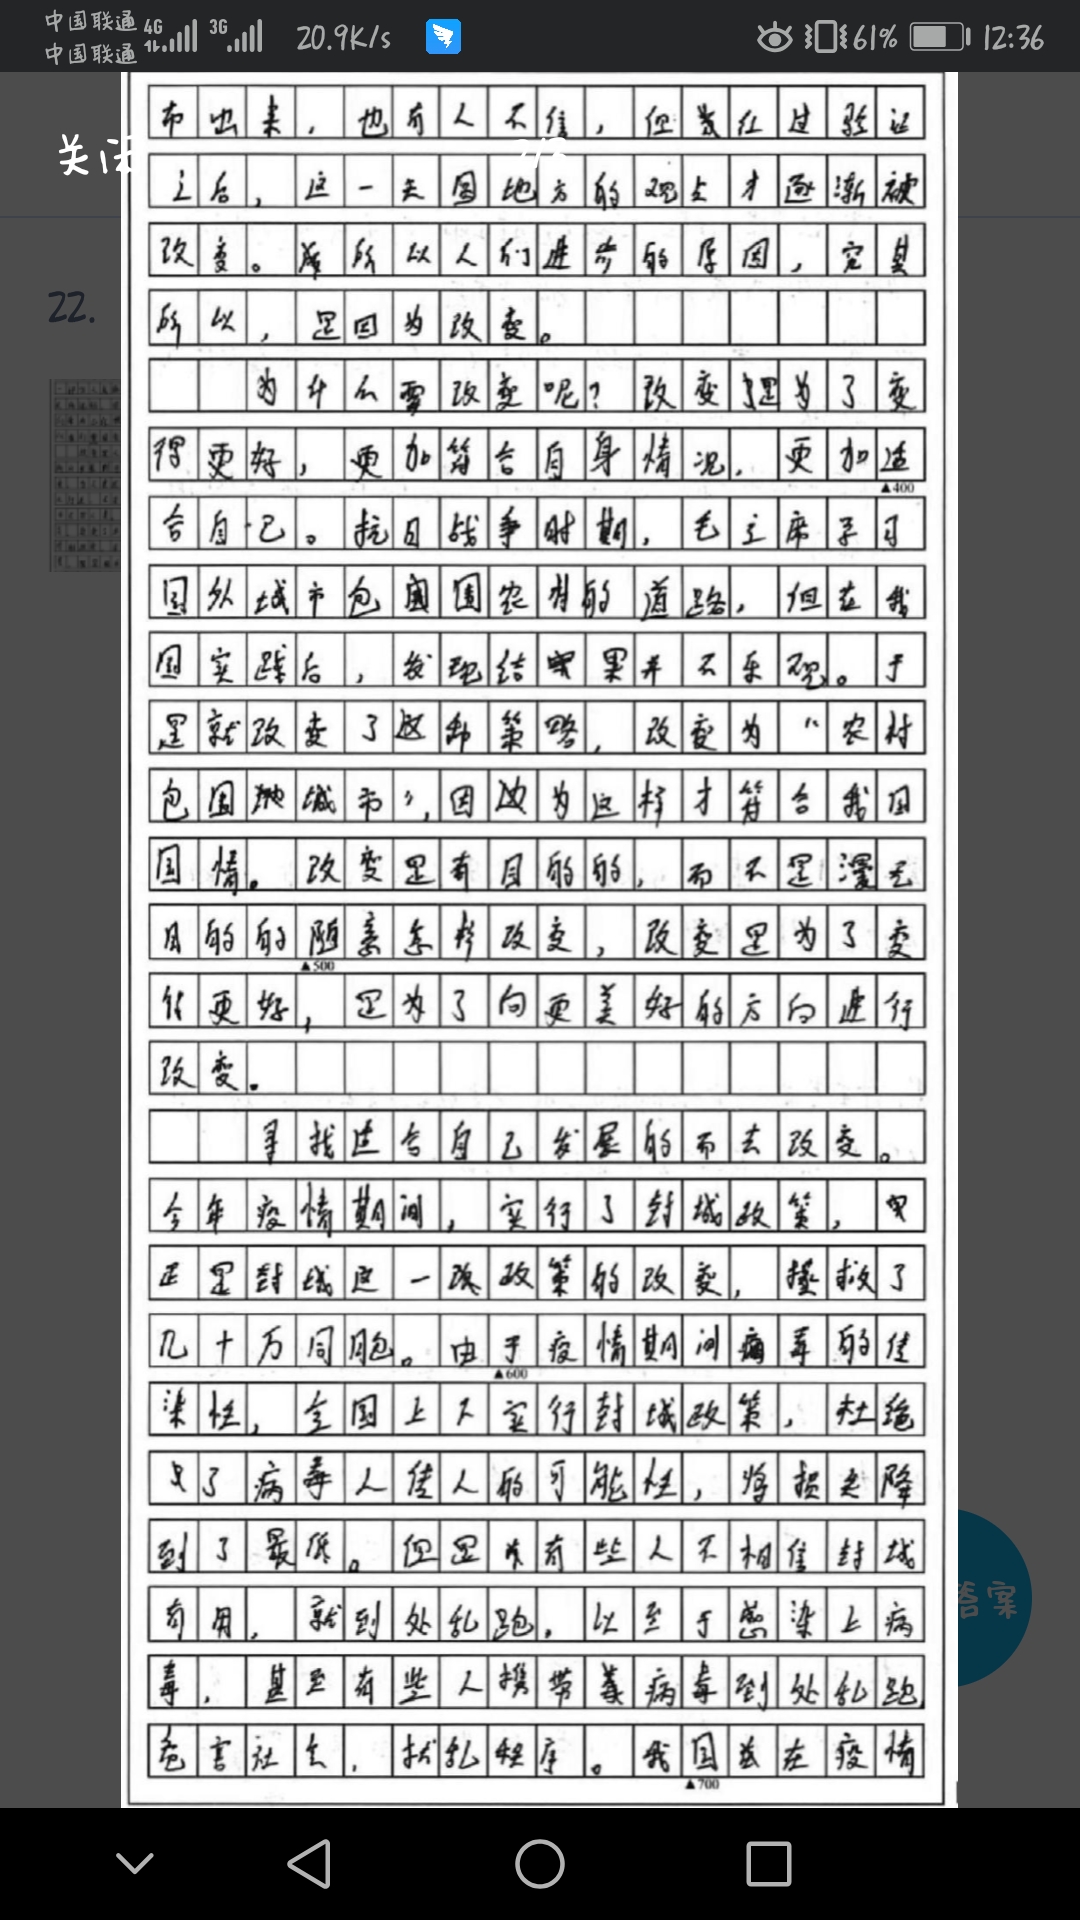 中国联通 4G 3G 20.9K/s 61% 12:36
中国联通
关闭
22.
布出来，也有人不信，但发在过验证
之后，这一天圆地方的观点才逐渐被
改变。所以人们进步的原因，究其
所以，是因为改变。
为什么需改变呢？改变是为了变
得更好，更加符合自身情况，更加适
▲400
合自己。抗日战争时期，毛主席学习
国外城市包围农村的道路，但在我
国实践后，发现结果并不乐观。于
是就改变了这部策略，改变为“农村
包围城市”，因为这样才符合我国
国情。改变是有目的的，而不是漫无
目的的随意怎样改变，改变是为了变
▲500
得更好，是为了向更美好的方向进行
改变。
寻找适合自己发展的而去改变。
今年疫情期间，实行了封城政策，
正是封城这一政策的改变，拯救了
几十万同胞。由于疫情期间病毒的传
▲600
染性，全国上下实行封城政策，杜绝
了病毒人传人的可能性，将损失降
到了最低。但是有些人不相信封城
有用，就到处乱跑，以至于感染上病
毒，甚至有些人携带着病毒到处乱跑
危害社会，扰乱秩序。我国在疫情
▲700
答案